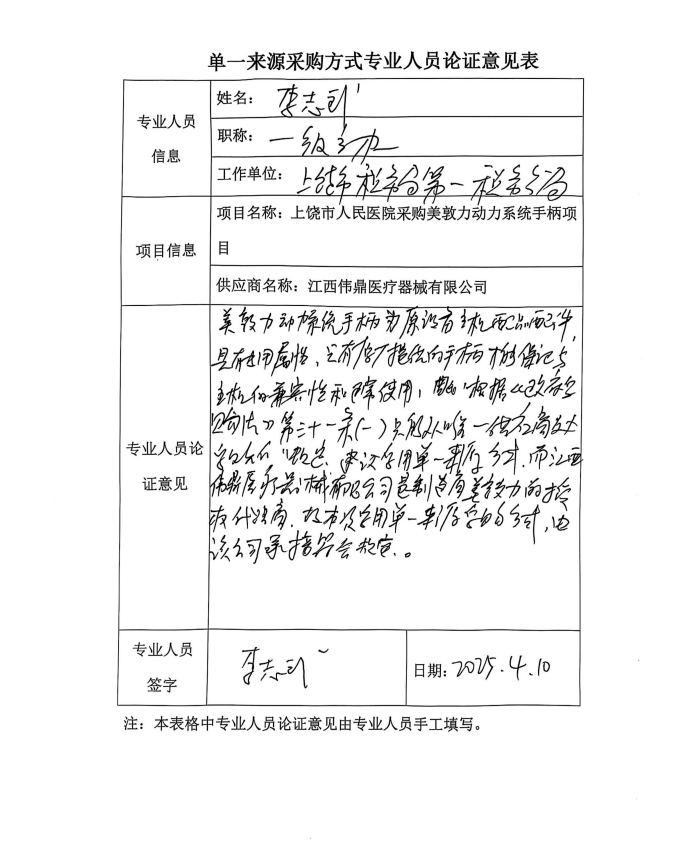 单一来源采购方式专业人员论证意见表
专业人员
信息
姓名：李志刚
职称：一级主办
工作单位：上饶市税务局第一税务分局
项目信息
项目名称：上饶市人民医院采购美敦力动力系统手柄项
目
供应商名称：江西伟鼎医疗器械有限公司
专业人员论
证意见
美敦力动力系统手柄为原设备主机配品配件，
具有专用属性、只有原厂提供的手柄才能保证与
主机的兼容性和正常使用，根据《政府采
购法》第三十一条(一)只能从唯一供应商处
采购的规定，建议采用单一来源方式，而江西
伟鼎医疗器械有限公司是制造商美敦力的授
权代理商，故本次采用单一来源采购方式，由
该公司承接符合规定。
专业人员
签字
李志刚
日期：2025.4.10
注：本表格中专业人员论证意见由专业人员手工填写。